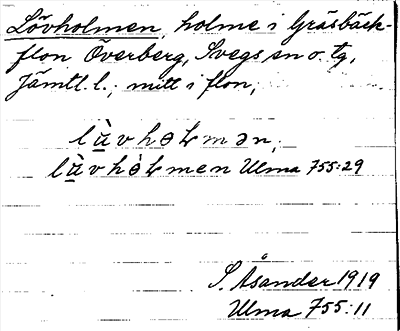 Lövholmen, holme i Gräsbäck-
flon Överberg, Svegs sn o. tg,
Jämtl. l.; mitt i flon;
lùvhɵɫmən;
lùvhɵ̀ɫmen Ulma 755:29
S. Åsander 1919
Ulma 755:11